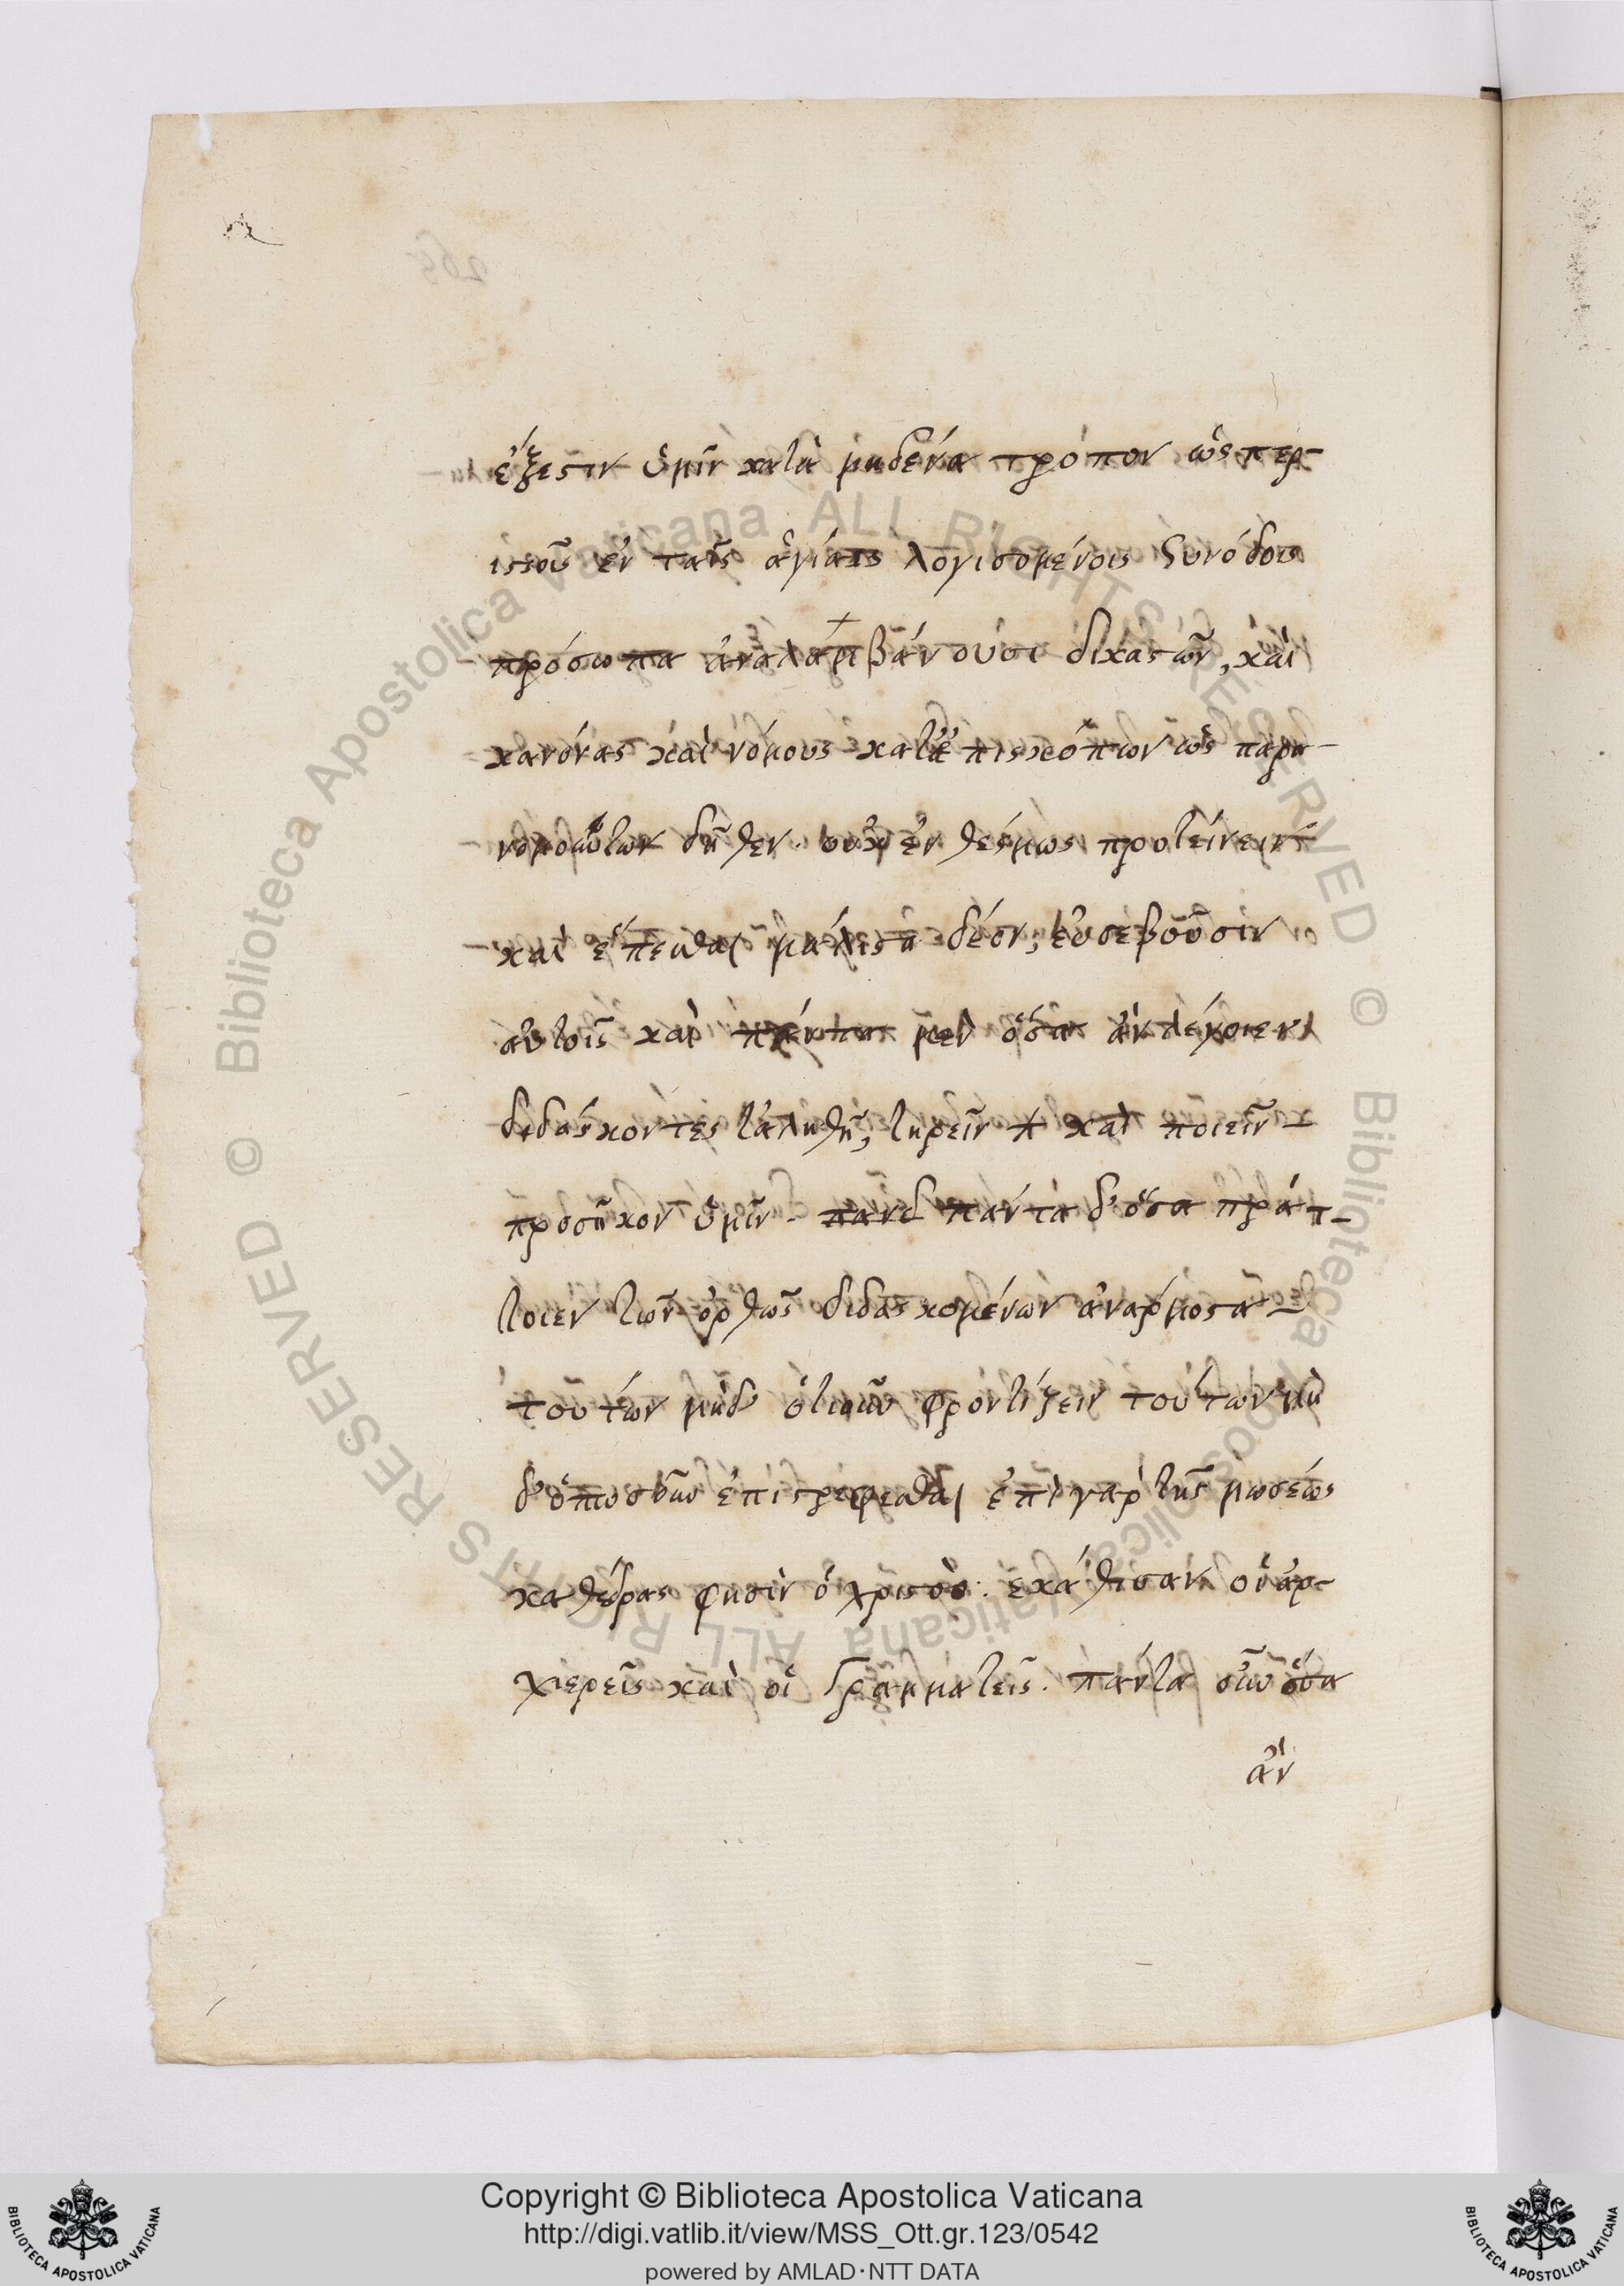 ἔξεστιν ὑμῖν κατὰ μηδένα τρόπον ὡς περ-
ἐν ταῖς ἁγίαις λογισομένοις συνόδοις
πρόσωπα ἀναλαμβάνουσι δικαστῶν, καὶ
κανόνας καὶ νόμους κατ' ἐπισκόπων ὡς παρα-
νομούντων δῆθεν. οὐκ ἐνθέσμως προτείνειν
καὶ ἕπεσθαι μάλιστα δέον, εὐσεβοῦσιν
αὐτοῖς καὶ πάντα μὲν ὅσα ἂν λέγοιεν
διδάσκοντες τἀληθῆ, τηρεῖν καὶ ποιεῖν
προσῆκον ὑμῖν. πάντα δ' ὅσα πράτ-
τοιεν τῶν ὀρθῶς διδασκομένων ἀνάρμοστα
τούτων μηδ' ὁτιοῦν φροντίζειν τούτων μη
δ' ὁπωσοῦν ἐπιστρέφεσθαι ἐπὶ γὰρ τῆς μωσέως
καθέδρας φησὶν ὁ χριστὸς. ἐκάθισαν οἱ ἀρ-
χιερεῖς καὶ οἱ Γραμματεῖς. πάντα οὖν ὅσα
ἂν
Copyright © Biblioteca Apostolica Vaticana
http://digi.vatlib.it/view/MSS_Ott.gr.123/0542
powered by AMLAD·NTT DATA